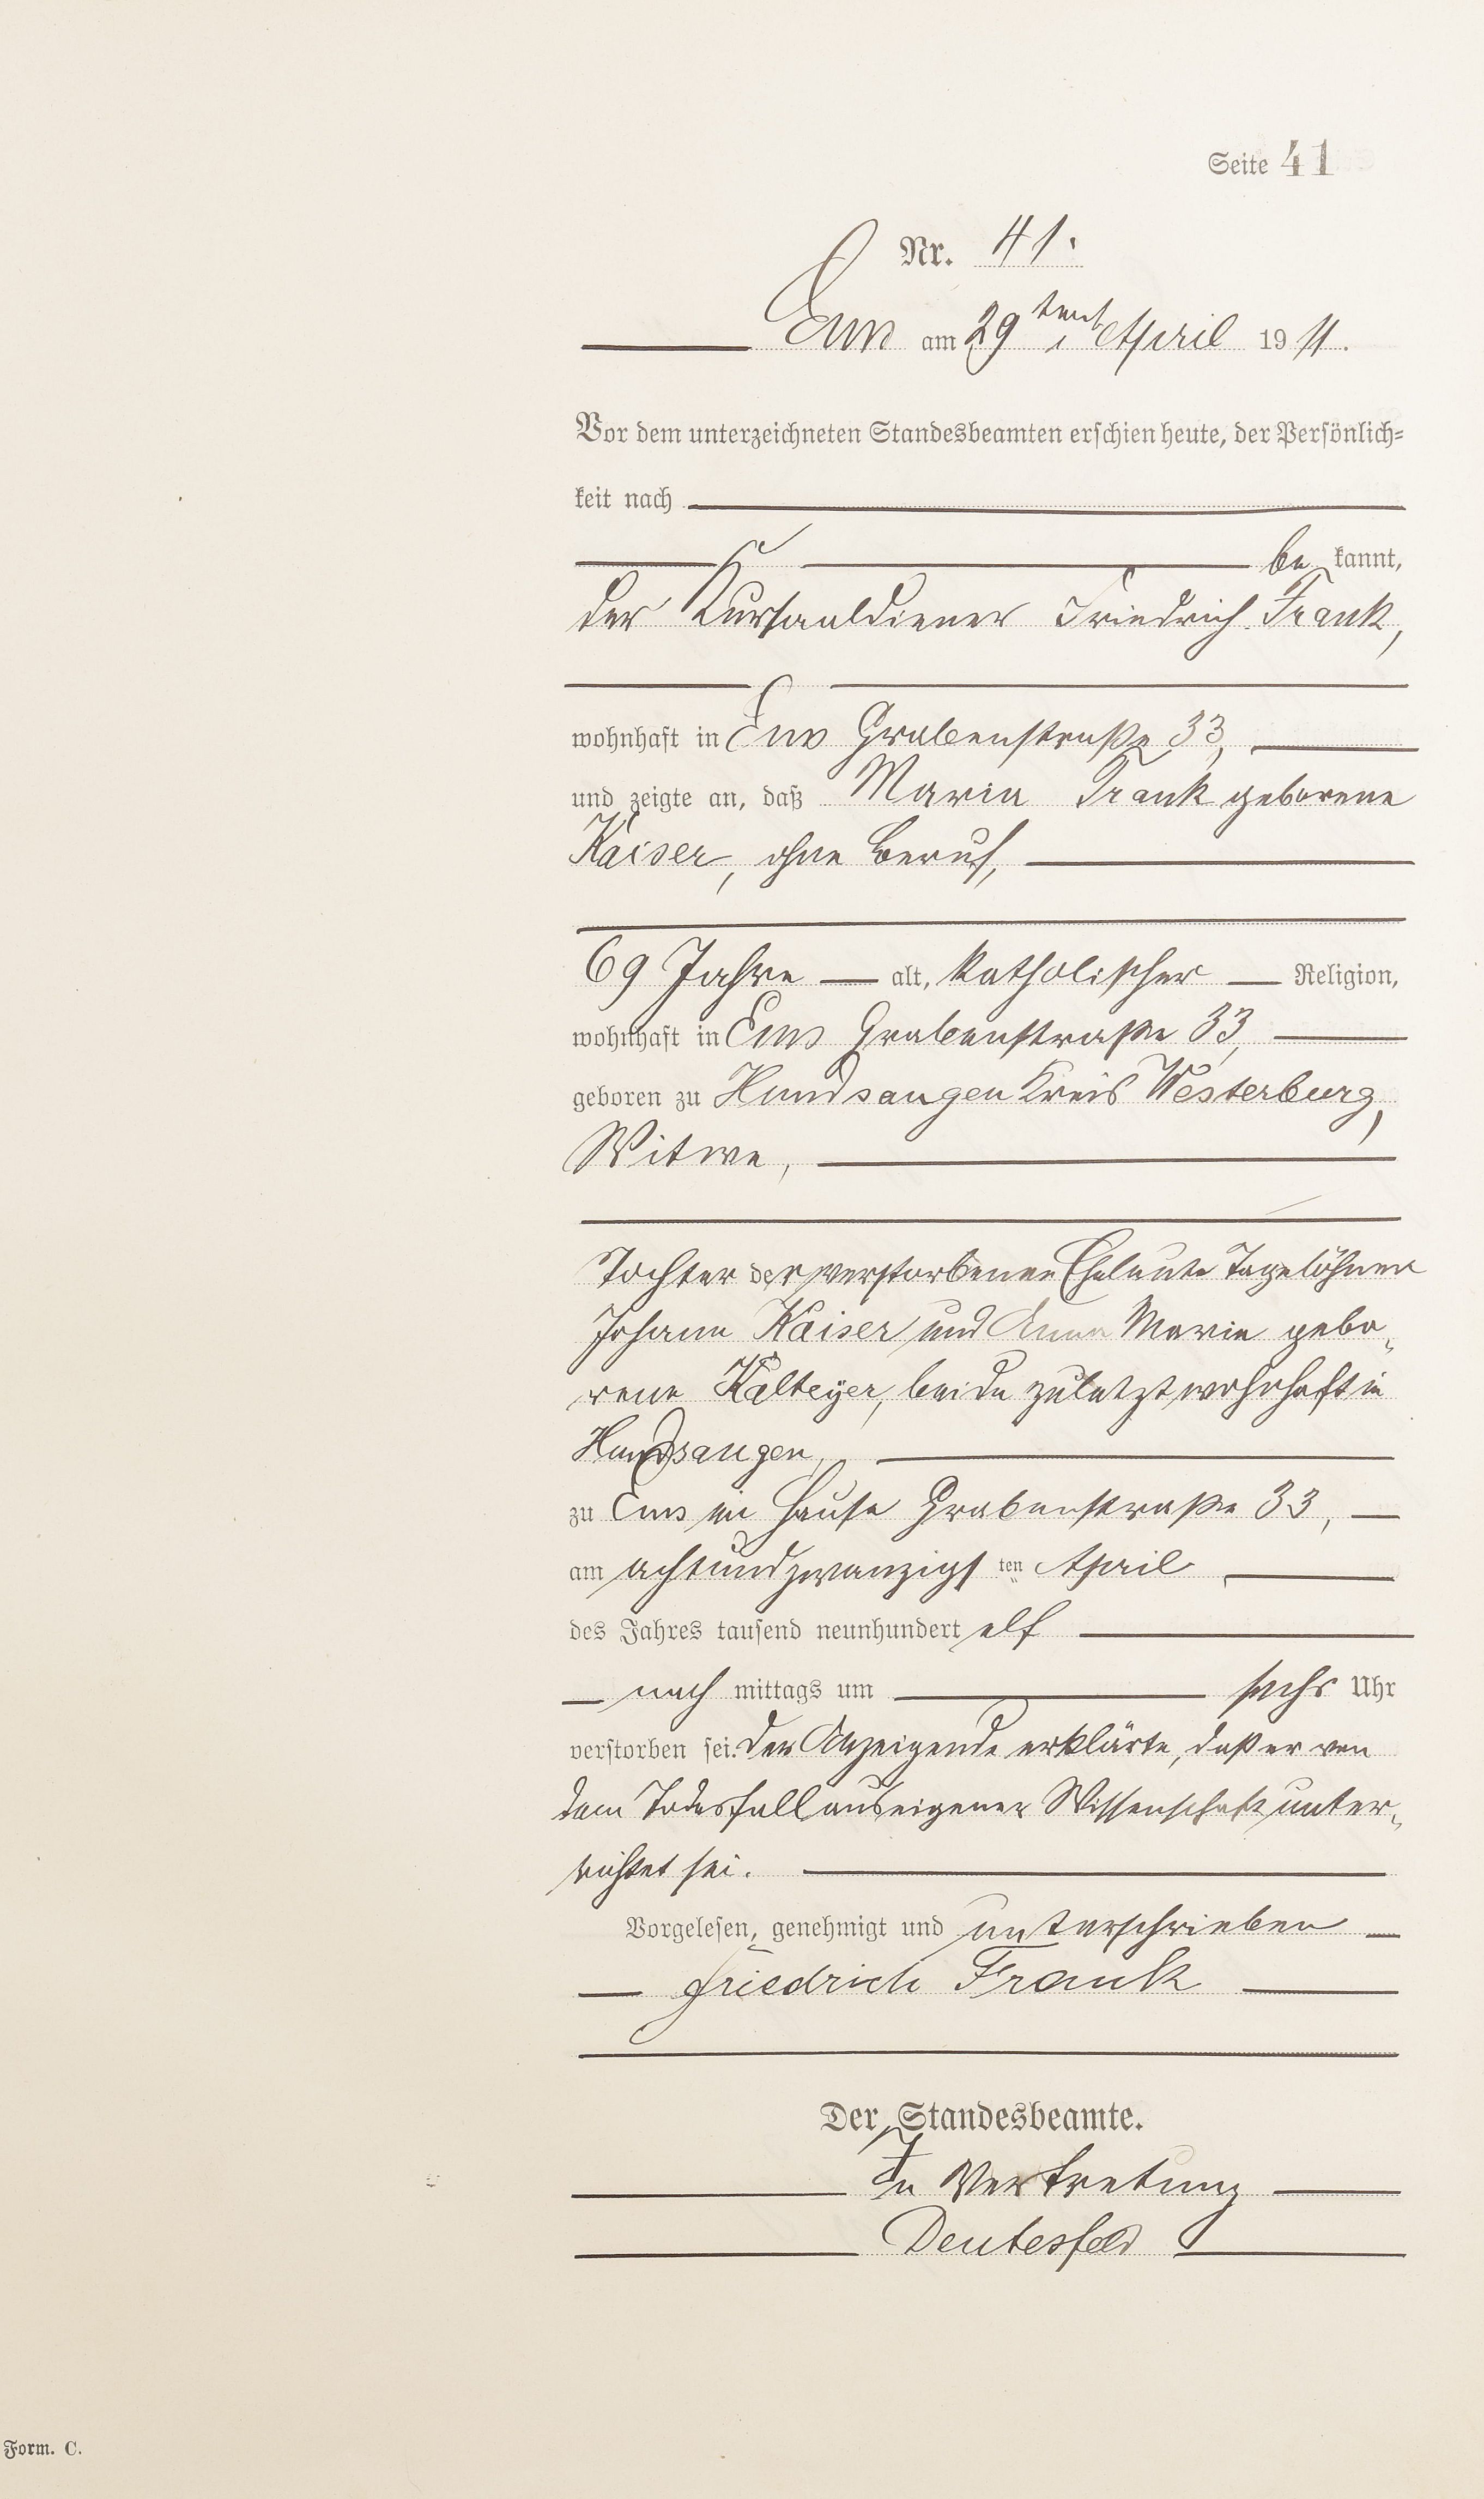 Seite 41
Nr. 41.
Ems am 29ten April 19 11.
Vor dem unterzeichneten Standesbeamten erschien heute, der Persönlich-
keit nach
be kannt,
der Kursaaldiener Friedrich Frank,
wohnhaft in Ems Grabenstraße 33,
und zeigte an, daß Maria Frank geborene
Kaiser, ohne Beruf,
69 Jahre alt, katholischer Religion,
wohnhaft in Ems Grabenstraße 33,
geboren zu Hundsangen Kreis Westerburg,
Witwe,
Tochter der verstorbenen Eheleute Tagelöhner
Johann Kaiser und Anna Maria gebo-
rene Kalteyer, beide zuletzt wohnhaft in
Hundsangen,
zu Ems im Hause Grabenstraße 33,
am achtundzwanzigsten April
des Jahres tausend neunhundert elf
nach mittags um sechs Uhr
verstorben sei. Der Anzeigende erklärte, daß er von
dem Todesfall aus eigener Wissenschaft unter-
richtet sei.
Vorgelesen, genehmigt und unterschrieben
Friedrich Frank
Der Standesbeamte.
In Vertretung
Deutesfeld
Form. C.